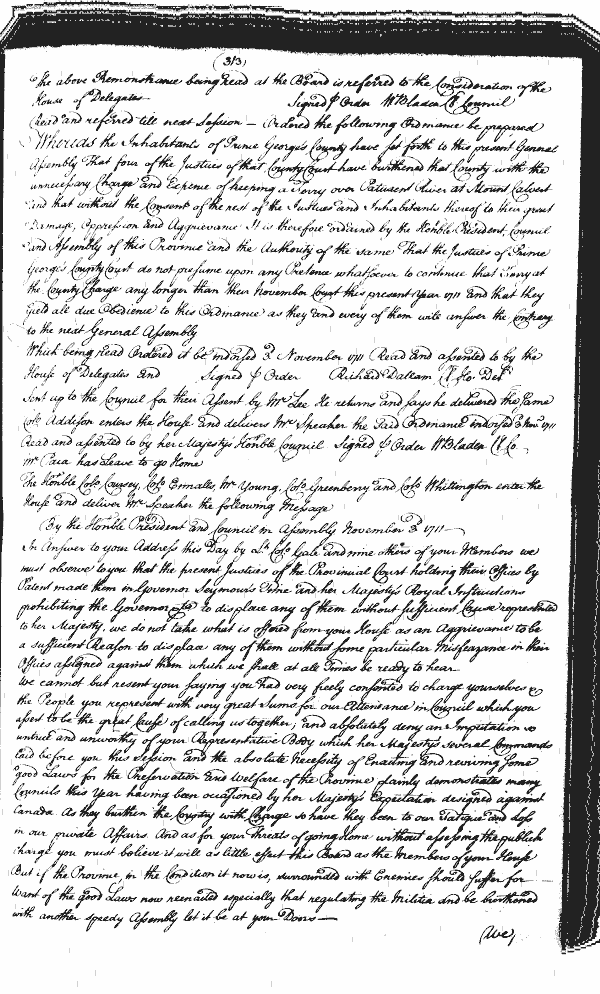 (313)
The above Remonstrance being read at the Board is referred to the Consideration of the
House of Delegates Signed ℘ Order WBladen Cl Council
Read and referred till next Session — Ordered the following Ordinance be prepared
Whereas the Inhabitants of Prince Georges County have set forth to this present General
Assembly That four of the Justices of that County Court have burthened that County with the
unnecessary Charge and Expence of keeping a Ferry over Patuxent River at Mount Calvert
and that without the Consent of the rest of the Justices and Inhabitants thereof to their great
Damage, Oppression and Aggrievance It is therefore ordained by the Honble President, Council
and Assembly of this Province and the Authority of the same That the Justices of Prince
Georges County Court do not presume upon any Pretence whatsoever to continue that Ferry at
the County Charge any longer than their November Court this present Year 1711 and that they
yield all due Obedience to this Ordinance as they and every of them will answer the Contrary
to the next General Assembly
Which being read Ordered it be indorsed 3d November 1711 Read and assented to by the
House of Delegates and Signed ℘ Order Richard Dallam Cl Ho. Del
Sent up to the Council for their Assent by Mr Lee. He returns and says he delivered the same
Colo Addison enters the House and delivers Mr Speaker the said Ordinance indorsed 3 Novr 1711
Read and assented to by her Majestys Honble Council Signed ℘ Order WBladen Cl Co.
Mr Caia has Leave to go Home
The Honble Colo Coursey, Colo Ennalls, Mr Young, Colo Greenberry and Colo Whittington enter the
House and deliver Mr Speaker the following Message
By the Honble President and Council in Assembly November 3d 1711
In Answer to your Address this Day by Lt Colo Gale and nine others of your Members we
must observe to you that the present Justices of the Provincial Court holding their Offices by
Patent made them in Governor Seymours Time and her Majestys Royal Instructions
prohibiting the Governor to displace any of them without sufficient Cause represented
to her Majesty, we do not take what is offered from your House as an Aggrievance to be
a sufficient Reason to displace any of them without some particular Misfeazance in their
Offices assigned against them which we shall at all Times be ready to hear
We cannot but resent your saying you had very freely consented to charge yourselves &
the People you represent with very great Sums for our Attendance in Council which you
assert to be the great Cause of calling us together; and absolutely deny an Imputation so
untrue and unworthy of your Representative Body which her Majestys several Commands
laid before you this Session and the absolute Necessity of Enacting and reviving some
good Laws for the Preservation and Welfare of the Province plainly demonstrates many
Councils this Year having been occasioned by her Majestys Expectation designed against
Canada As they burthen the Country with Charge so have they been to our Fatigue and Loss
in our private Affairs. And as for your Threats of going Home without assessing the publick
charge you must believe it will as little affect this Board as the Members of your House
But if the Province, in the Condition it now is, surrounded with Enemies should suffer for
Want of the good Laws now reenacted especially that regulating the Militia and be burthened
with another speedy Assembly let it be at your Doors —
(We,